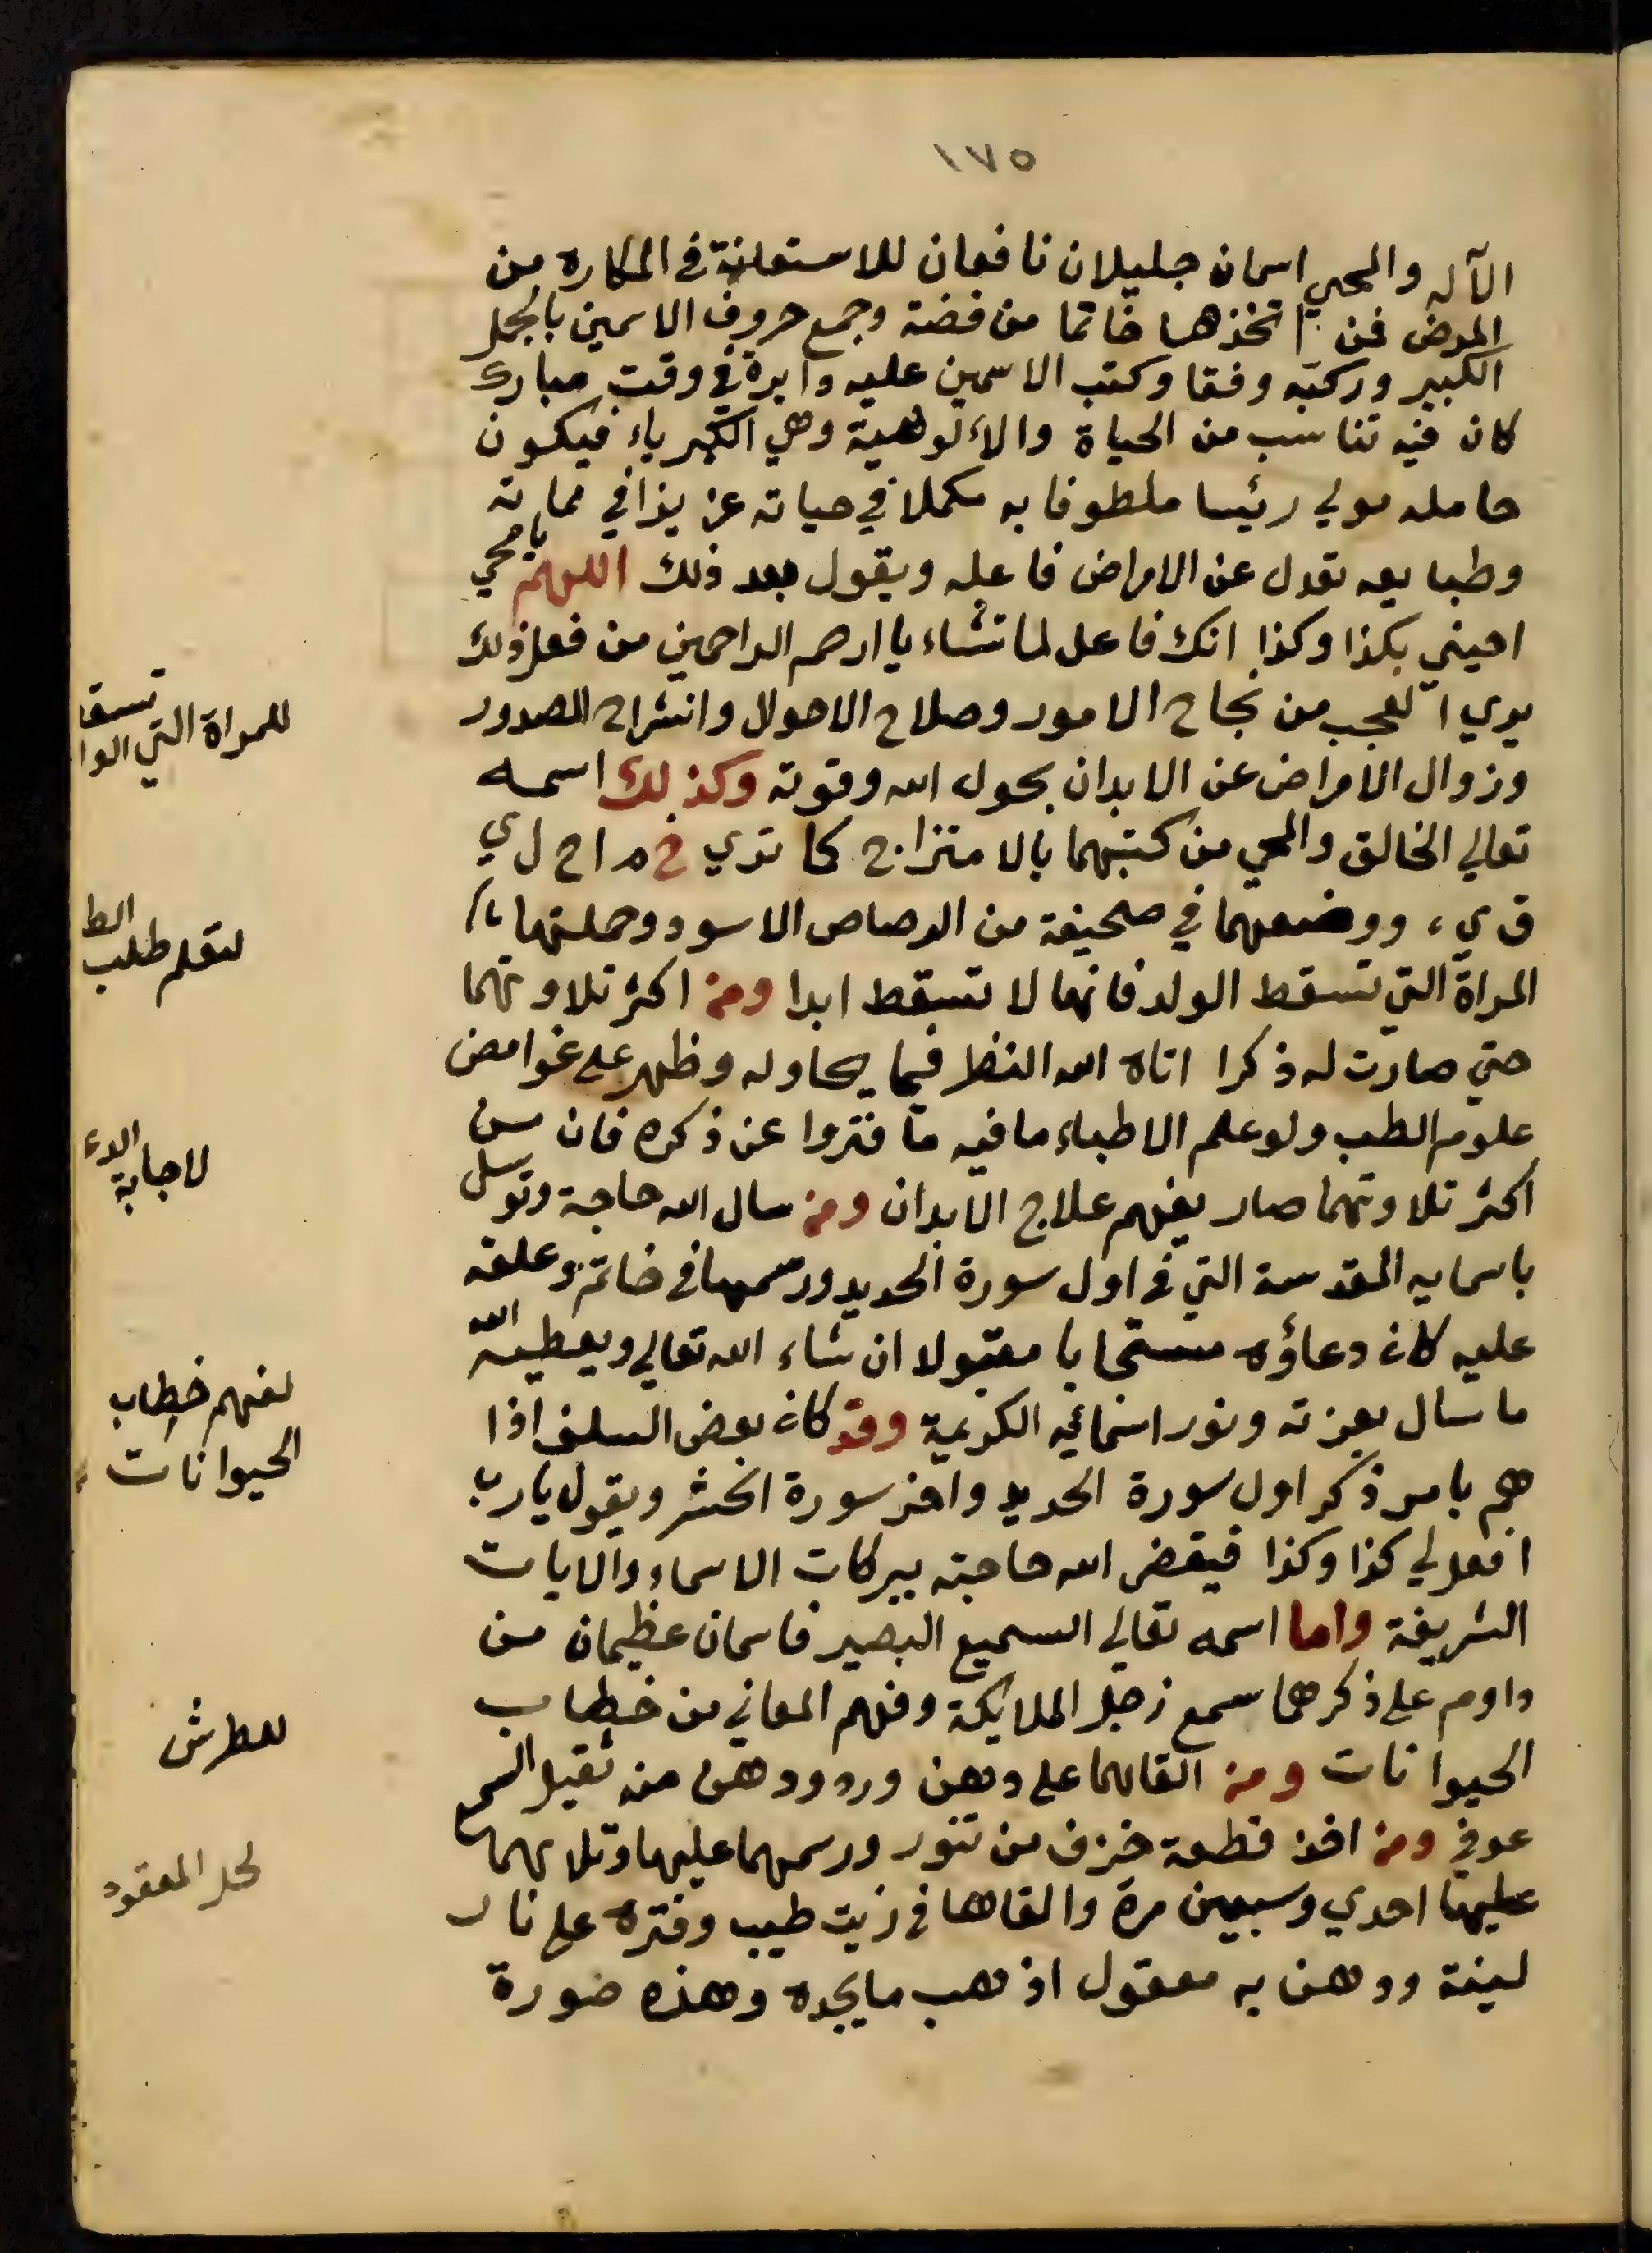 ١٧٥
الآله والمحيي اسمان جليلان نافعان للاستعانة في المكاره من
المرض فمن اتخذهما خاتما من فضة وجمع حروف الاسمين بالجمل
الكبير وركبه وفقا وكتب الاسمين عليه دايرة في وقت مبارك
كان فيه تناسب من الحياة والالوهية وهي الكبرياء فيكون
حامله مولي رئيسا ملطوفا به مكملا في حياته عزيزا في مماته
وطبايعه تعدل عن الامراض فاعله ويقول بعد ذلك اللهم يا محيي
احيني بكذا وكذا انك فاعل لما تشاء يا ارحم الراحمين من فعل ذلك
يري العجب من نجاح الامور وصلاح الاحوال وانشراح الصدور
وزوال الامراض عن الابدان بحول الله وقوته وكذلك اسمه
تعالي الخالق والمحيي من كتبهما بالامتزاج كما تري خ م ا ح ل ي
ق ي، ووضعهما في صحيفة من الرصاص الاسود وحملتها
المراة التي تسقط الولد فانها لا تسقط ابدا ومن اكثر تلاوتهما
حتي صارت له ذكرا اتاه الله النظر فيما يحاوله وظهر علي غوامض
علوم الطب ولو علم الاطباء ما فيه ما فتروا عن ذكره فان من
اكثر تلاوتهما صار يفهم علاج الابدان ومن سال الله حاجة وتوسل
باسمايه المقدسة التي في اول سورة الحديد ورسمها في خاتم وعلقه
عليه كان دعاؤه مستجابا مقبولا ان شاء الله تعالي ويعطيه الله
ما سال بعزته ونور اسمائه الكريمة وقد كان بعض السلف اذا
هم بامر ذكر اول سورة الحديد واخر سورة الحشر ويقول يا رب
افعل لي كذا وكذا فيقضي الله حاجته ببركات الاسماء والايات
الشريفة واما اسمه تعالي السميع البصير فاسمان عظيمان من
داوم علي ذكرهما سمع زجل الملايكة وفهم المعاني من خطاب
الحيوانات ومن القاهما علي دهن ورد ودهن منه ثقيل السمع
عوفي ومن اخذ قطعة خزف من تنور ورسمهما عليها وتلا بهما
عليها احدي وسبعين مرة والقاها في زيت طيب وفتره علي نار
لينة ودهن به معقول اذهب ما يجده وهذه صورة
للمراة التي تسقط
الوا
لتعلم طلب الط
لاجابة الدء
لفهم خطاب
الحيوانات
للطرش
لحل المعقود